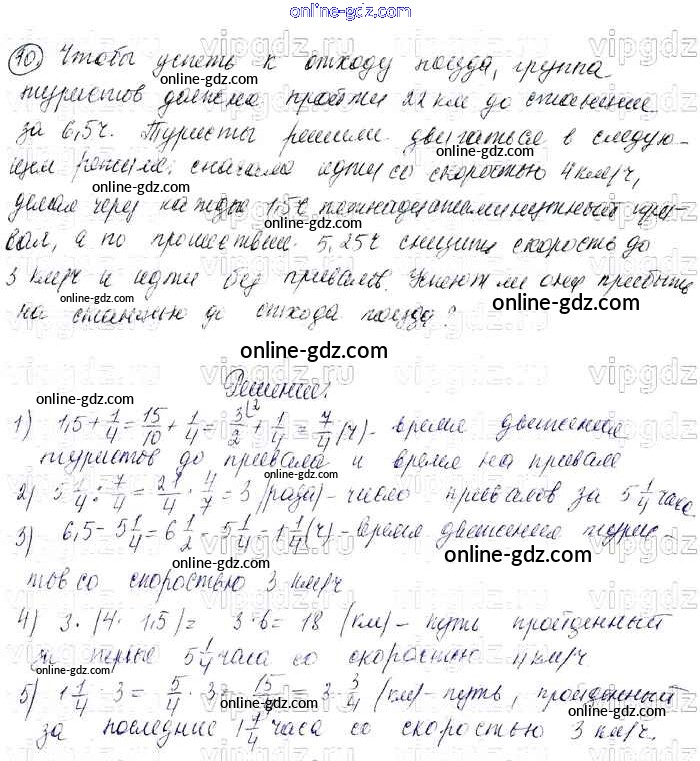 online-gdz.com
10) Чтобы успеть к отходу поезда, группа
online-gdz.com
туристов должна пройти 22 км до станции
за 6,5ч. Туристы решили двигаться в следую-
online-gdz.com
щем режиме: сначала идти со скоростью 4 км/ч,
online-gdz.com
делая через каждые 1,5ч пятнадцатиминутный при-
online-gdz.com
вал, а по прошествии 5,25ч снизить скорость до
3 км/ч и идти без привалов. Успеют ли они прибыть
online-gdz.com online-gdz.com
на станцию до отхода поезда?
online-gdz.com
Решение:
online-gdz.com
1) 1,5 + 1/4 = 15/10 + 1/4 = 3/2 + 1/4 = 7/4 (ч) - время движения
online-gdz.com
туристов до привала и время на привале
2) 5 1/4 : 7/4 = 21/4 · 4/7 = 3 (раза) - число привалов за 5 1/4 часа
online-gdz.com
3) 6,5 - 5 1/4 = 6 1/2 - 5 1/4 = 1 1/4 (ч) - время движения турис-
online-gdz.com
тов со скоростью 3 км/ч
online-gdz.com
4) 3 · (4 · 1,5) = 3 · 6 = 18 (км) - путь пройденный
за первые 5 1/4 часа со скоростью 4 км/ч
online-gdz.com
5) 1 1/4 · 3 = 5/4 · 3 = 15/4 = 3 3/4 (км) - путь, пройденный
online-gdz.com online-gdz.com
за последние 1 1/4 часа со скоростью 3 км/ч.